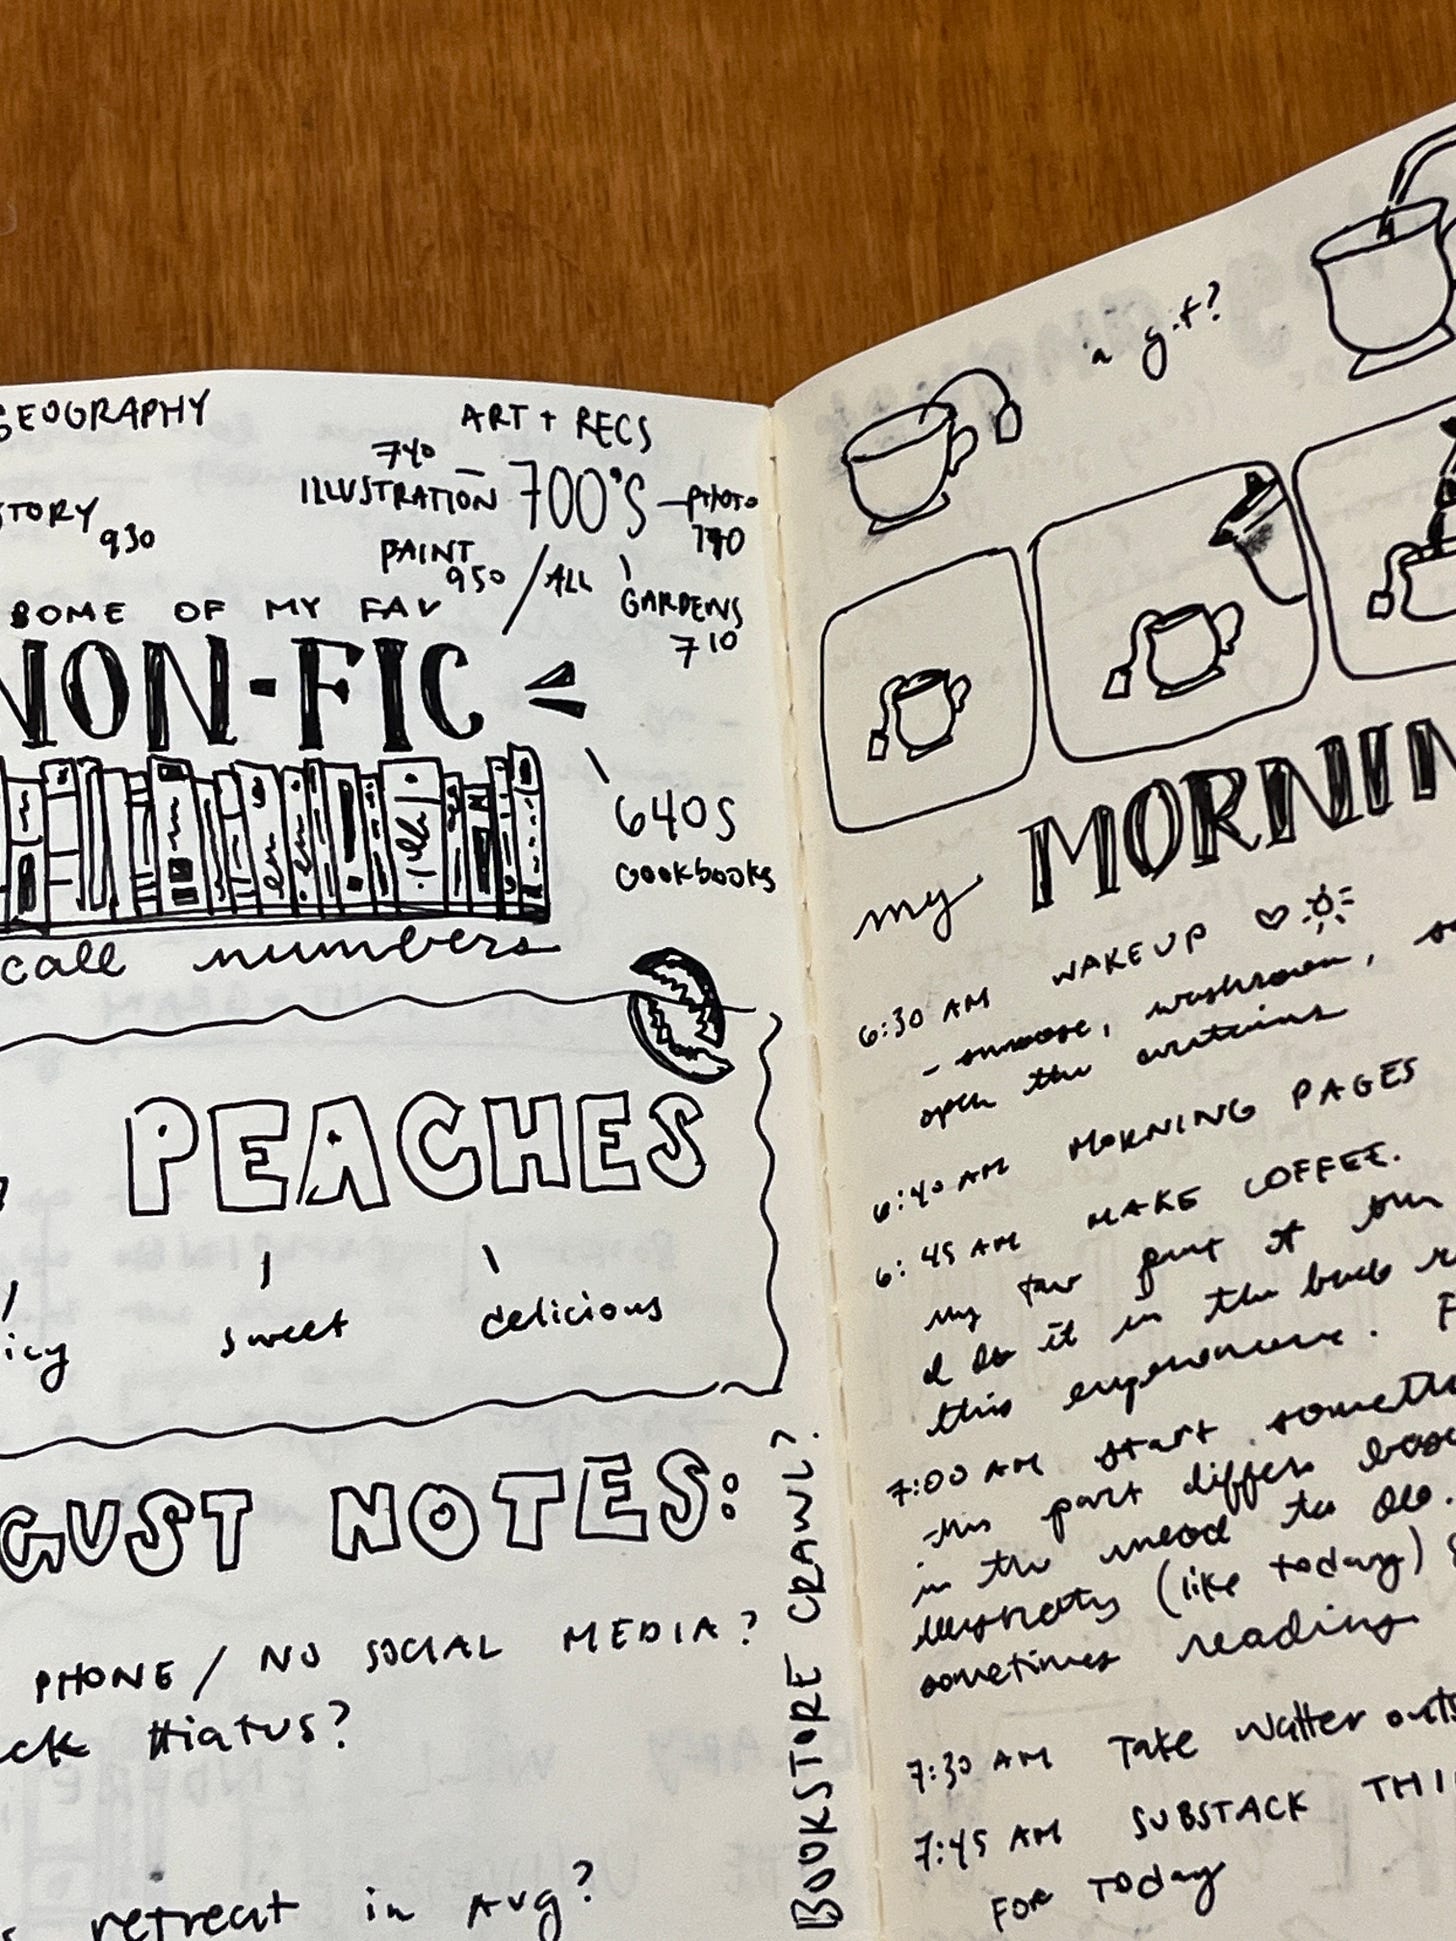 GEOGRAPHY
STORY 930
ART + RECS
740
ILLUSTRATION – 700'S – PHOTO
790
PAINT
950 / ALL
GARDENS
710
SOME OF MY FAV
NON-FIC
640S
Cookbooks
call numbers
PEACHES
icy sweet delicious
GUST NOTES:
PHONE / NO SOCIAL MEDIA?
ck Hiatus?
retreat in Aug?
BOOKSTORE CRAWL?
a gif?
my MORNIN
6:30 AM WAKE UP
- snooze, washroom,
open the curtains
6:40 AM MORNING PAGES
6:45 AM MAKE COFFEE.
my fav part of
I do it in the back
this experience.
7:00 AM start someth
this part differs base
in the mood to do.
(like today)
sometimes reading
7:30 AM Take Walter outs
7:45 AM SUBSTACK THI
FOR TODAY